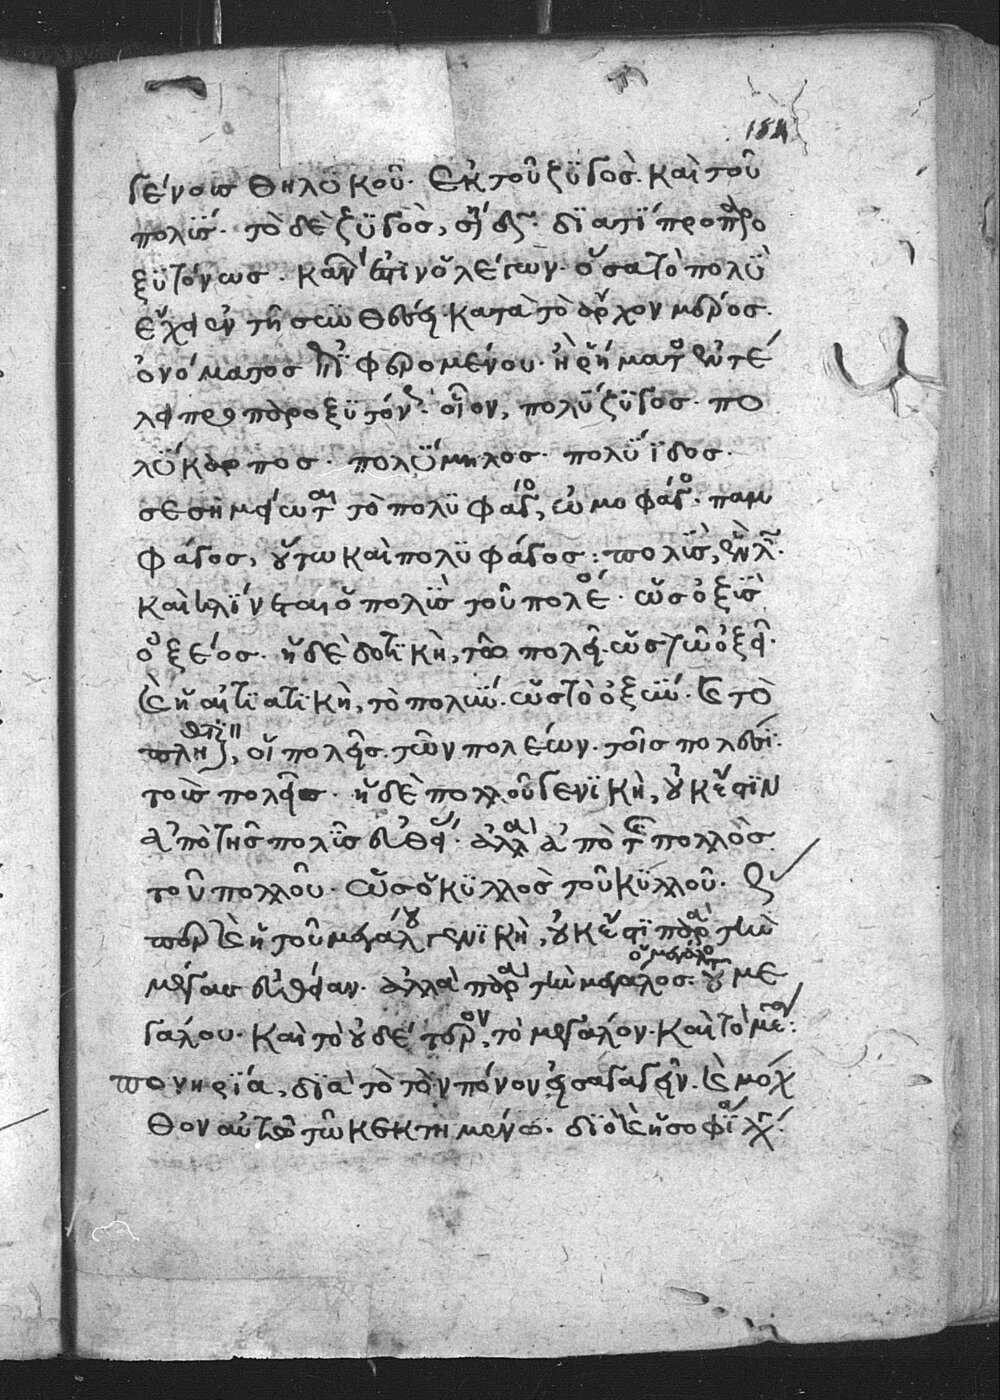 184
γένους θηλυκοῦ. ἐκ τοῦ ζυγὸς. καὶ τοῦ
πολύς. τὸ δὲ ζυγὸς, διατί προπαρο
ξυτόνως. κανών ἐστιν ὁ λέγων. ὅσα τὸ πολὺ
ἔχει ἐν τῇ συνθέσει κατὰ τὸ ἄρχον μέρος.
ὀνόματος ἐπιφερομένου. ἢ ῥήματος εὐτε
λεῖ προπαροξυτόν. οἷον, πολύζυγος. πο
λύκαρπος. πολύμηλος. πολύϊδος.
σεσημείωται τὸ πολυφάγος, ὠμοφάγος. παμ
φάγος, οὕτω καὶ πολυφάγος: πολὺς,
καὶ κλίνεται ὁ πολὺς τοῦ πολέος. ὡς ὀξὺς
ὀξέος. ἡ δὲ δοτικὴ, τῶ πολεῖ. ὡς τῶ ὀξεῖ.
καὶ ἡ αἰτιατικὴ, τὸ πολύν. ὡς τὸ ὀξύν. καὶ τὸ
πληθυντικόν, οἱ πολεῖς. τῶν πολέων. τοῖς πολέσι.
τοὺς πολεῖς. ἡ δὲ πολλοῦ γενικὴ, οὐκ ἔστιν
ἀπὸ τῆς πολὺς εὐθείας. ἀλλὰ ἀπὸ τῆς πολλὸς
τοῦ πολλοῦ. ὡς ὁ κύλλος τοῦ κύλλου.
ὥσπερ καὶ ἡ τοῦ μεγάλου γενικὴ, οὐκ ἔστι παρὰ τὴν
μέγας εὐθεῖαν. ἀλλὰ παρὰ τὴν μεγάλος. ὁ μεγάλος τοῦ με
γάλου. καὶ τὸ οὐδέτερον, τὸ μεγάλον. καὶ τὸ μέγα:
πονηρία, διὰ τὸ τὸν πόνον εἰσαγαγεῖν. καὶ μόχ
θον αὐτῶ τῶ κεκτημένω. διὸ καὶ ἡ σοφία